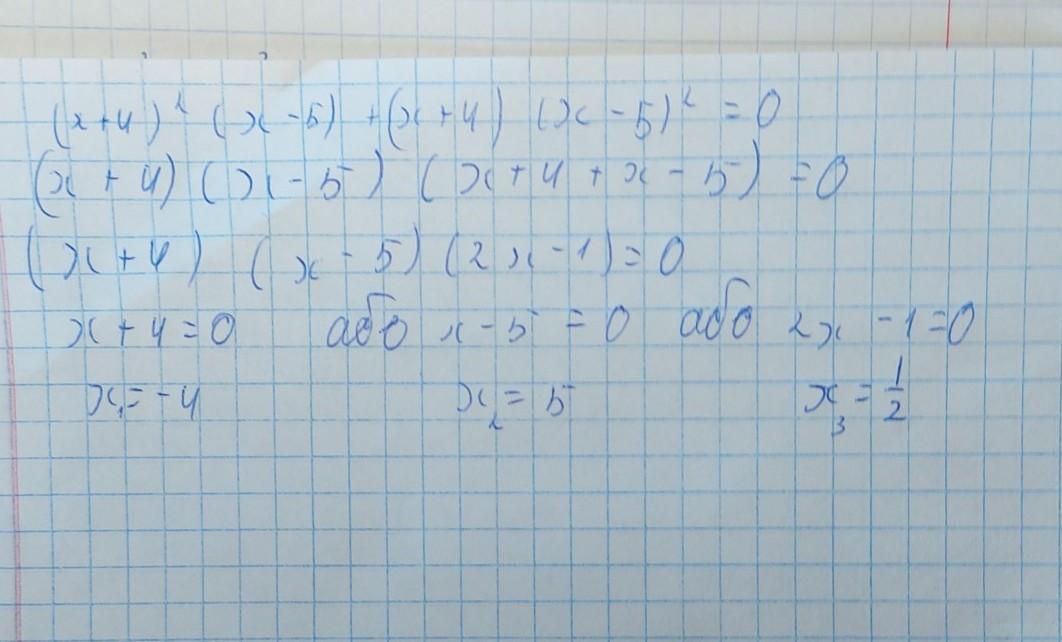 (x+4)² (x-5) + (x+4) (x-5)² = 0
(x+4) (x-5) (x+4+x-5) = 0
(x+4) (x-5) (2x-1) = 0
x+4=0 або x-5=0 або 2x-1=0
x₁=-4 x₂=5 x₃=1/2